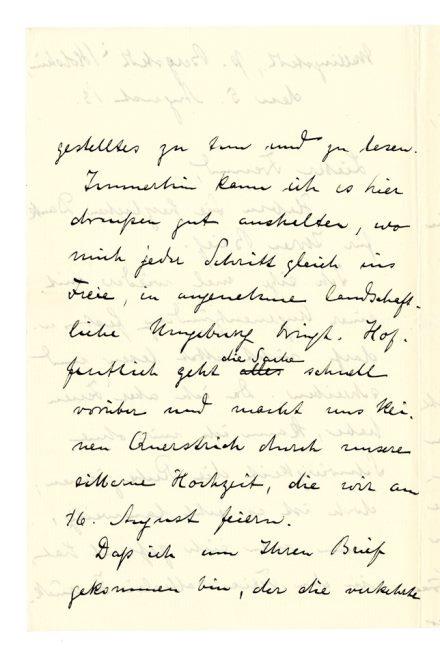 gestelltes zu tun und zu lesen.
Immerhin kann ich es hier
draußen gut aushalten, wo
mich jeder Schritt gleich ins
Freie, in angenehme landschaft-
liche Umgebung bringt. Hof-
fentlich geht alles die Sache schnell
vorüber und macht uns kei-
nen Querstrich durch unsere
silberne Hochzeit, die wir am
16. August feiern.
Daß ich um Ihren Brief
gekommen bin, der die verkehrte